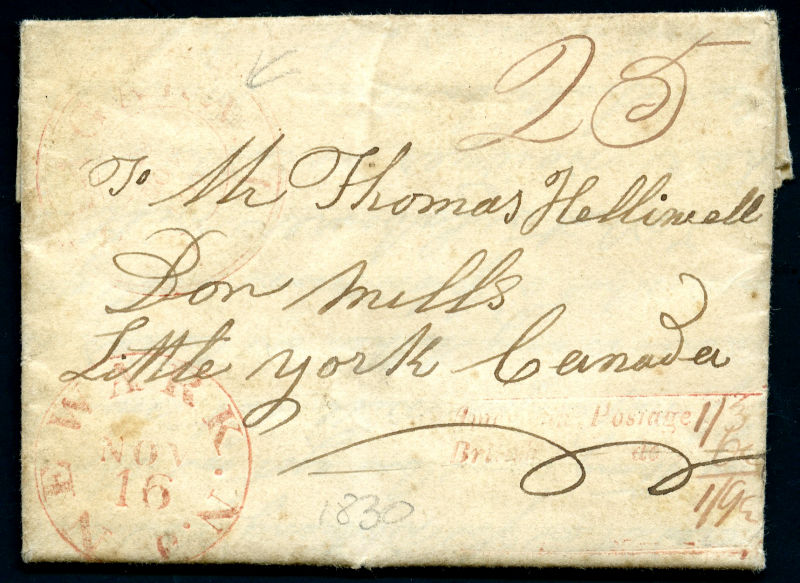 25
To Mr Thomas Helliwell
Don Mills
Little york Canada
NEWARK. N.
NOV
16
Postage 1/3
British do
1/9½
1830